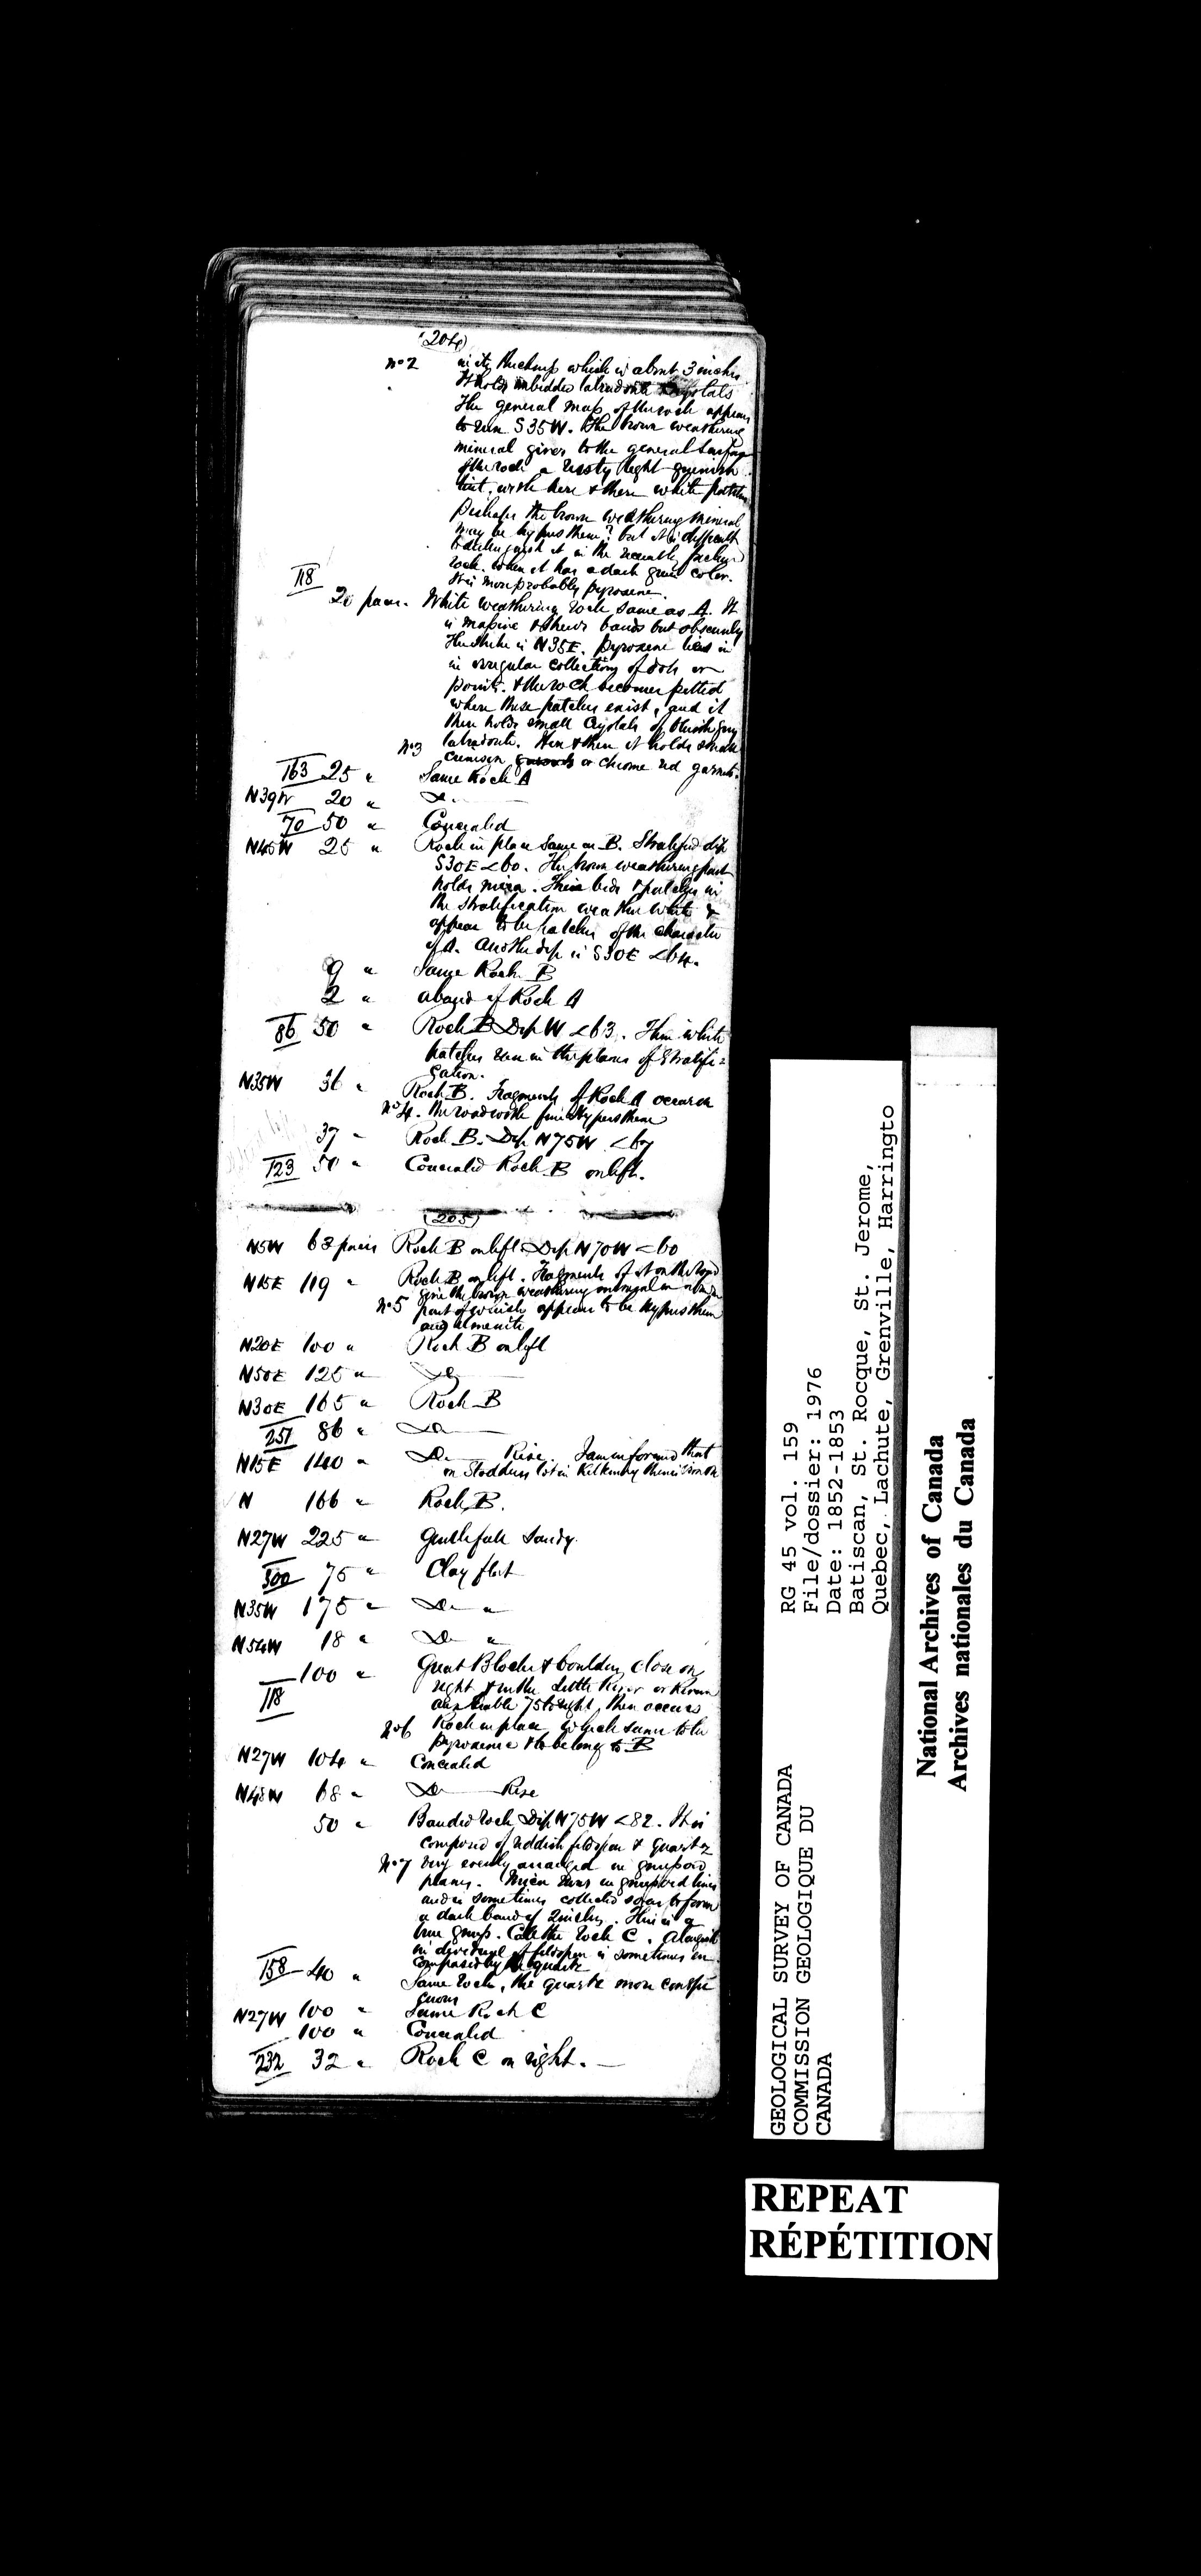 (204)
No 2 in its thickness which is about 3 inches
It holds imbedded labradorite crystals
The general mass of the rock appears
to run S35W. The brown weathering
mineral gives to the general surface
of the rock a rusty light greenish
tint, with here & there white patches
Perhaps the brown weathering mineral
may be hypersthene? but it is difficult
to distinguish it in the recently fractured
rock. When it has a dark green color.
It is more probably pyroxene.
118
20 paces. White weathering rock same as A. It
is massive & shews bands but obscurely
The strike is N35E. Pyroxene lies in
in irregular collections of dots or
points. & the rock becomes pitted
where these patches exist, and it
then holds small crystals of bluish grey
labradorite. Here & there it holds small
No 3 crimson or chrome red garnets.
163 25 " Same Rock A
N39W 20 " Do
70 50 " Concealed
N45W 25 " Rock in place same as B. Stratified dip
S30E <60. The brown weathering part
holds mica. These beds & patches in
the stratification weather white &
appear to be patches of the character
of A. Another dip is S30E <64.
9 " Same Rock B
2 " a band of Rock A
86 50 " Rock B Dip W <63. Thin white
patches run in the planes of Stratifi=
cation.
N35W 36 " Rock B. Fragments of Rock A occur on
No 4. the road with fine Hypersthene
37 " Rock B. Dip N75W <67
123 50 " Concealed Rock B on left.
(205)
N5W 63 paces Rock B on left Dip N70W <60
N15E 119 " Rock B on left. Fragments of it on the road
give the brown weathering mineral
No 5 part of which appears to be hypersthene
and ilmenite
N20E 100 " Rock B on left
N50E 125 " Do
N30E 165 " Rock B
251 86 " Do
N15E 140 " Do Rise. I am informed that
on Stoddens lot in Kilkenny there is iron ore
N 166 " Rock B.
N27W 225 " Gentle fall Sandy.
300 75 " Clay flat
N35W 175 " Do "
N54W 18 " Do "
100 " Great Blocks & boulders, close on
118 right & in the Little River or River
75 to right, then occurs
No 6 Rock in place which seems to be
pyroxenic & to belong to B
N27W 104 " Concealed
N48W 68 " Do Rise
50 " Banded rock Dip N75W <82. It is
composed of reddish feldspar & quartz
No 7 very evenly arranged in gneissoid
planes. Mica runs in gneissoid lines
and is sometimes collected so as to form
a dark band of 2 inches. This is a
true gneiss. Call the rock C.
of feldspar is sometimes
composed by the quartz
158 40 " Same rock, the quartz more conspi
cuous
N27W 100 " Same Rock C
100 " Concealed
232 32 " Rock C on right.
GEOLOGICAL SURVEY OF CANADA
COMMISSION GEOLOGIQUE DU
CANADA
RG 45 vol. 159
File/dossier: 1976
Date: 1852-1853
Batiscan, St. Rocque, St. Jerome,
Quebec, Lachute, Grenville, Harringto
National Archives of Canada
Archives nationales du Canada
REPEAT
RÉPÉTITION